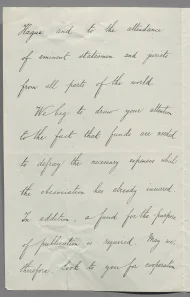 Hague and to the attendance
of eminent statesmen and jurists
from all parts of the world.
We beg to draw your attention
to the fact that funds are needed
to defray the necessary expenses which
the Association has already incurred.
In addition, a fund for the purpose
of publication is required. May we,
therefore, look to you for cooperation